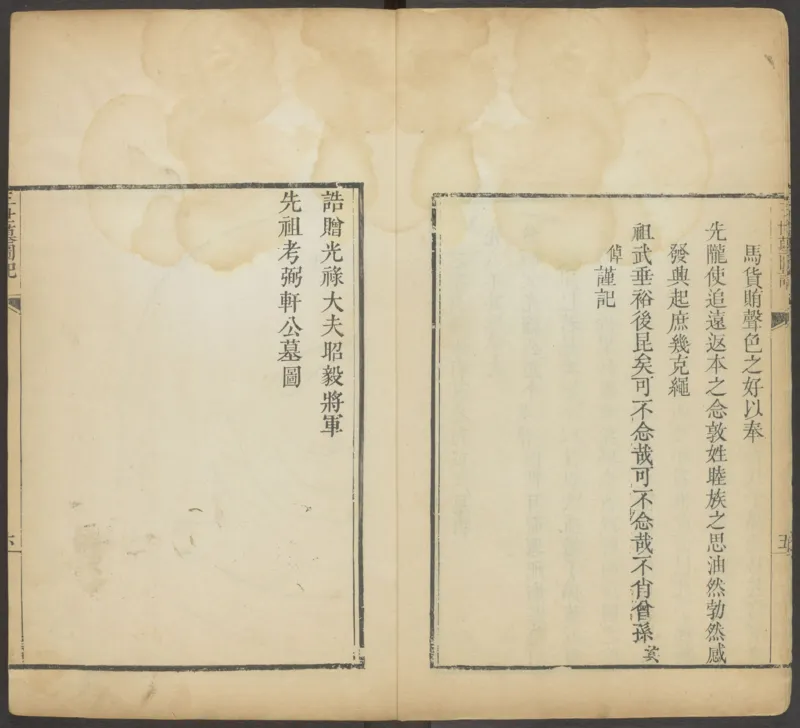 馬貨賄聲色之好以奉
先隴使追遠返本之念敦姓睦族之思油然勃然感
發興起庶幾克繩
祖武垂裕後昆矣可不念哉可不念哉不肖曾孫奕
倬謹記
五
誥贈光祿大夫昭毅將軍
先祖考弼軒公墓圖
六